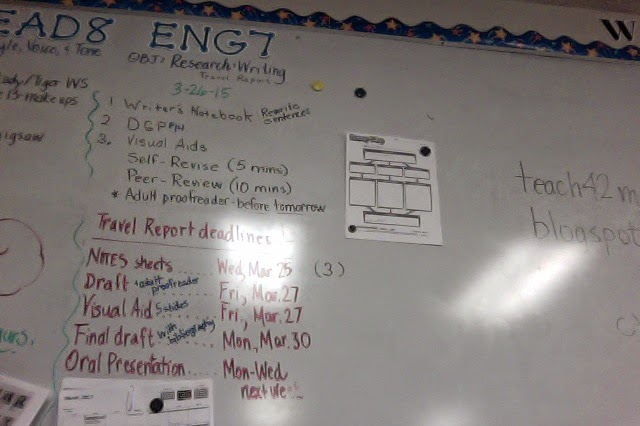 EAD8 ENG7
yle, Voice, & Tone
OBJ: Research & Writing
Travel Report
3-26-15
ady/Tiger WS
e 13 - makeups
igsaw
1 Writer's Notebook Rewrite sentences
2 DGP
3. Visual Aids
Self-Revise (5 mins)
Peer-Review (10 mins)
* Adult proofreader - before tomorrow
Travel Report deadlines
NOTES sheets ..... Wed, Mar 25 (3)
Draft + adult proofreader ... Fri, Mar. 27
Visual Aid 5 slides ... Fri, Mar. 27
Final draft with bibliography ... Mon, Mar. 30
Oral Presentation ..... Mon-Wed
next week
urs.
teach42m
blogspot
W